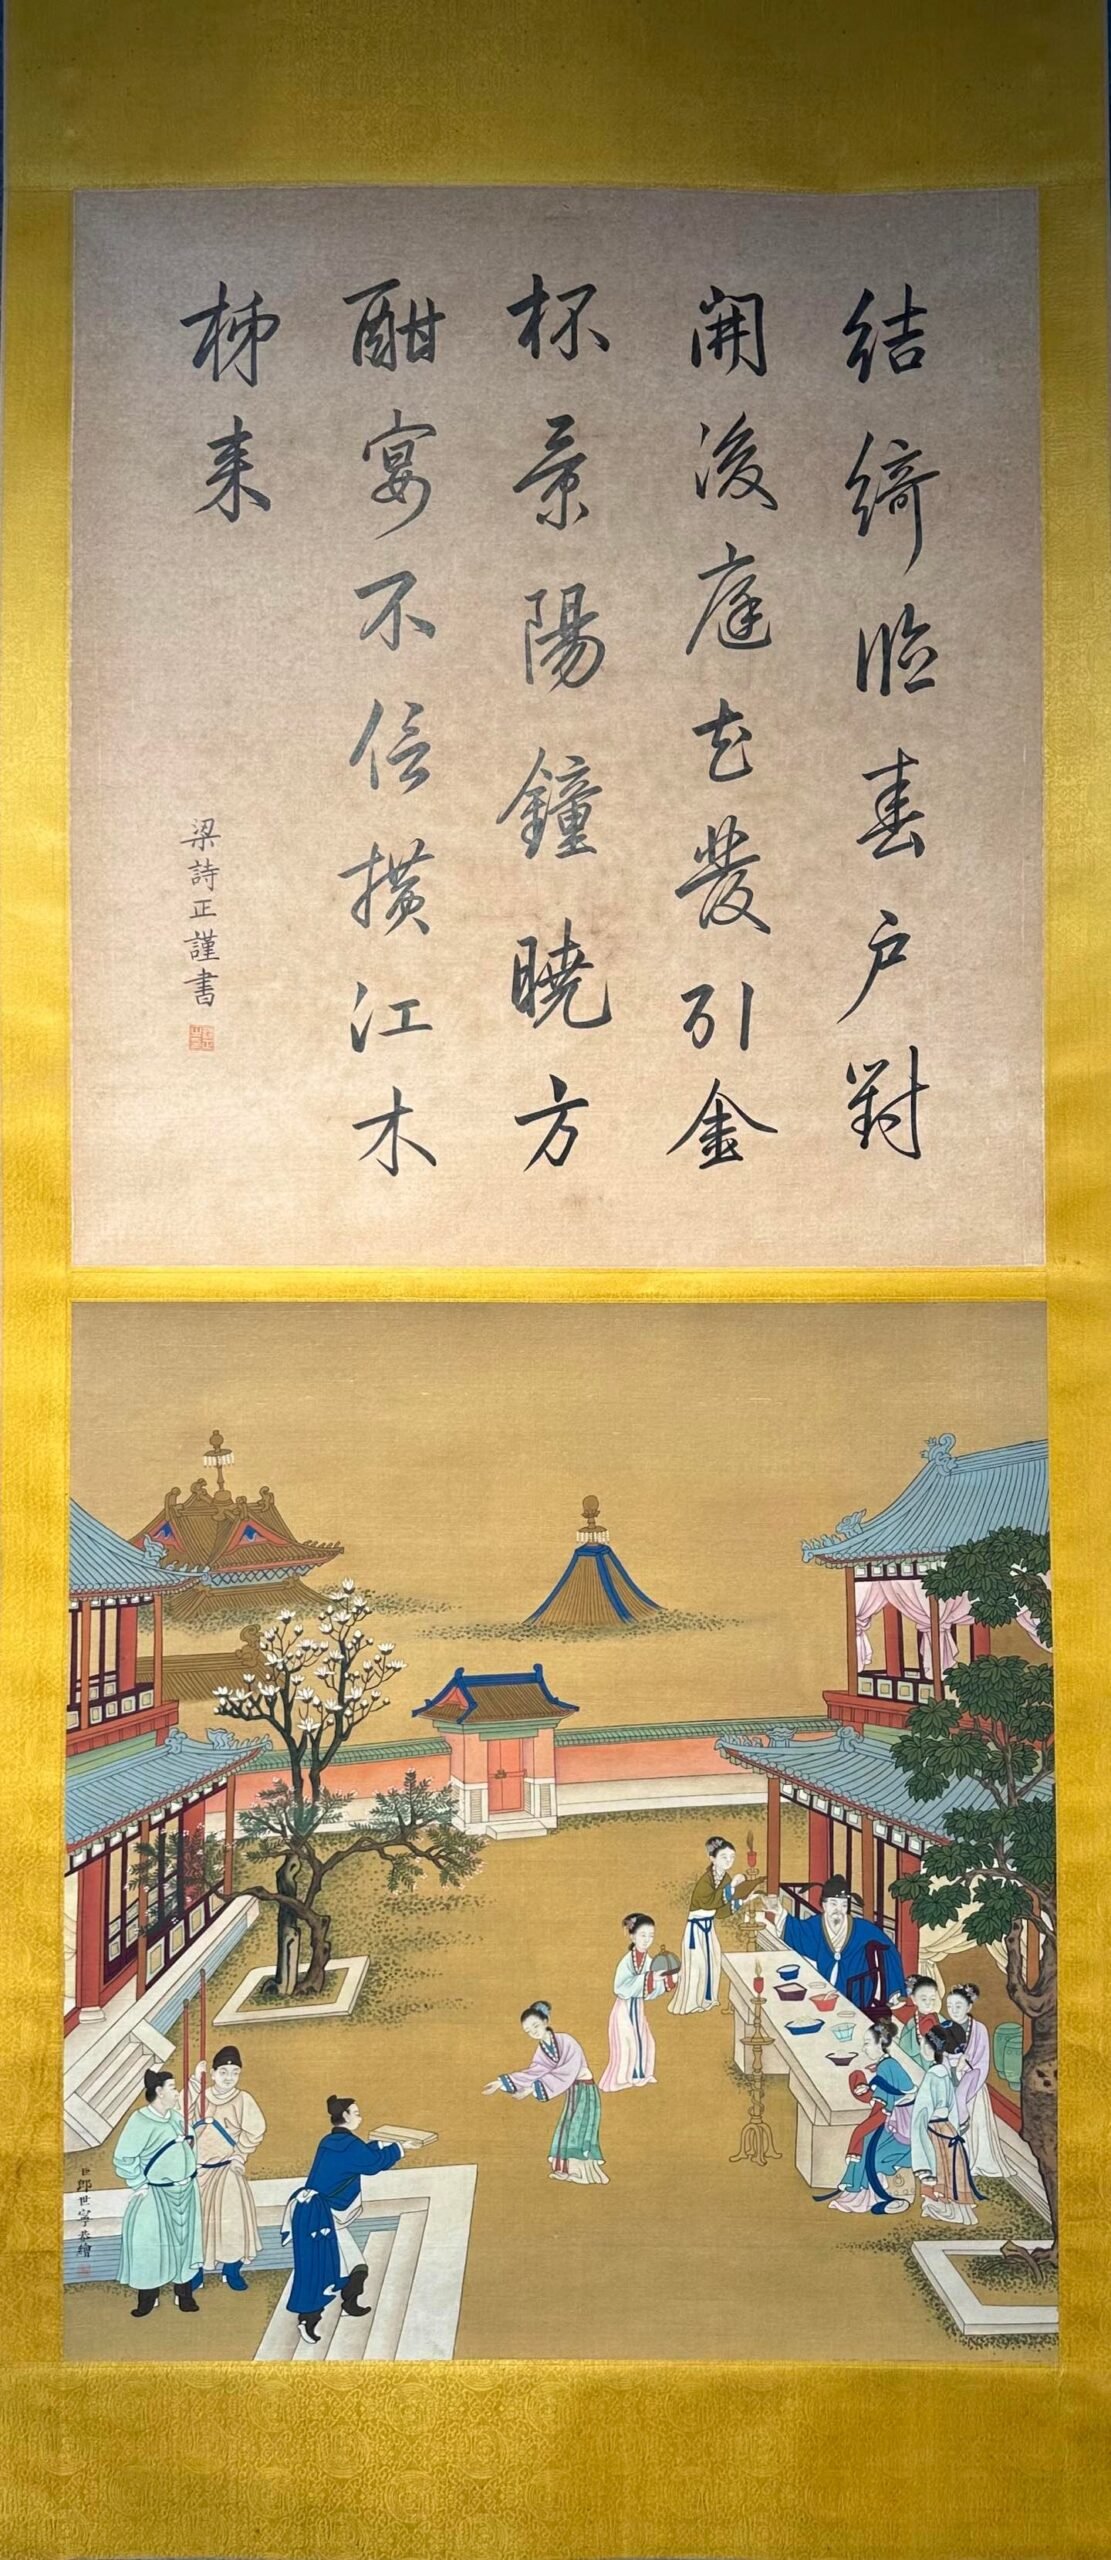 结绮临春户對
開後庭花發引金
杯景陽鐘曉方
酣宴不信橫江木
柹来
梁詩正謹書
臣郎世寧恭繪